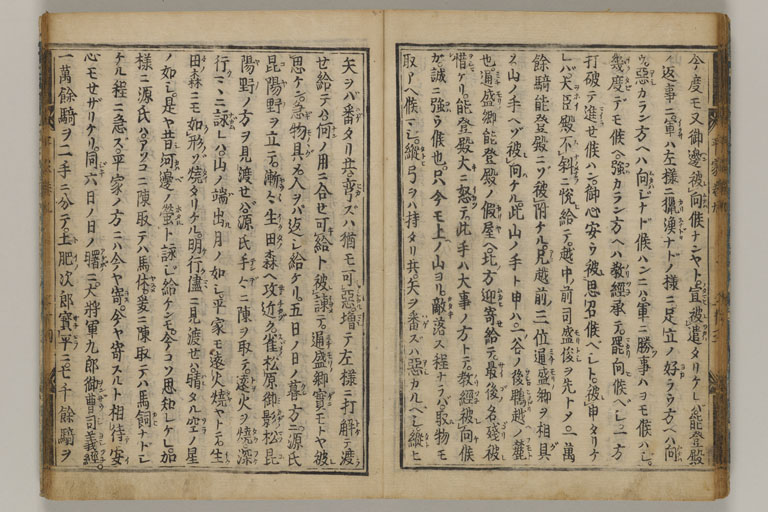 今度モ又御邊被向候ナンヤト宣被遣タリケレバ能登殿
ノ返事ニ軍ハ左様ニ獵漁ナドノ様ニ足立ノ好ラウ方ヘハ向
ウ惡カラン方ヘハ向ハジナド候ハンニハ軍ニ勝事ハヨモ候ハジ
幾度デモ候ヘ強カラン方ヘハ教經承テ罷向候ヘシ一方
打破テ進セ候ハン御心安ウ被思召候ヘシト被申タリケ
レバ大臣殿不斜ニ悦給テ越中前司盛俊ヲ先トメ一萬
餘騎能登殿ニゾ被附ケル兄越前三位通盛卿ヲ相具
メ山ノ手ヘゾ被向ケル此山ノ手ト申ハ一谷ノ後鵯越ノ麓
也通盛卿能登殿ノ假屋ヘ北方迎寄給テ最後ノ名殘被
惜ケリ能登殿大ニ怒テ此手ハ大事ノ方トテ教經被向候
ガ誠ニ強ウ候也只今モ上ノ山ヨリ敵落ス程ナラバ取物モ
取アヘ候マジ縱弓ヲハ持タリ共矢ヲ番スハ惡カルヘシ縱ヒ
矢ヲバ番タリ共弯ズハ猶モ可惡増テ左様ニ打解テ渡
セ給テハ何ノ用ニ合セ可給ト被諫テ通盛卿實モトヤ被
思ケン急物具メ人ヲバ返シ給ケリ五日ノ日ノ暮方ニ源氏
昆陽野ヲ立テ漸々生田森ヘ攻近ク雀松原御影松昆
陽野ノ方ヲ見渡セバ源氏手々ニ陣ヲ取テ遠火ヲ燒深
行マヽニ詠レバ山ノ端出月ノ如シ平家モ遠火燒ヤトテ生
田森ニモ如形ゾ燒タリケル明行儘ニ見渡セバ晴タル空ノ星
ノ如シ是ヤ昔河邊ノ螢ト詠シ給ケンモ今コソ思知レケレ加
様ニ源氏ハアソコニ陳取テハ馬休爰ニ陳取テハ馬飼ナドシ
ケル程ニ急ズ平家ノ方ニハ今ヤ寄今ヤ寄スルト相待安
心モセザリケリ同六日ノ日ノ曙ニ大將軍九郎御曹司義經
一萬餘騎ヲ二手ニ分テ土肥次郎實平ニ七千餘騎ヲ